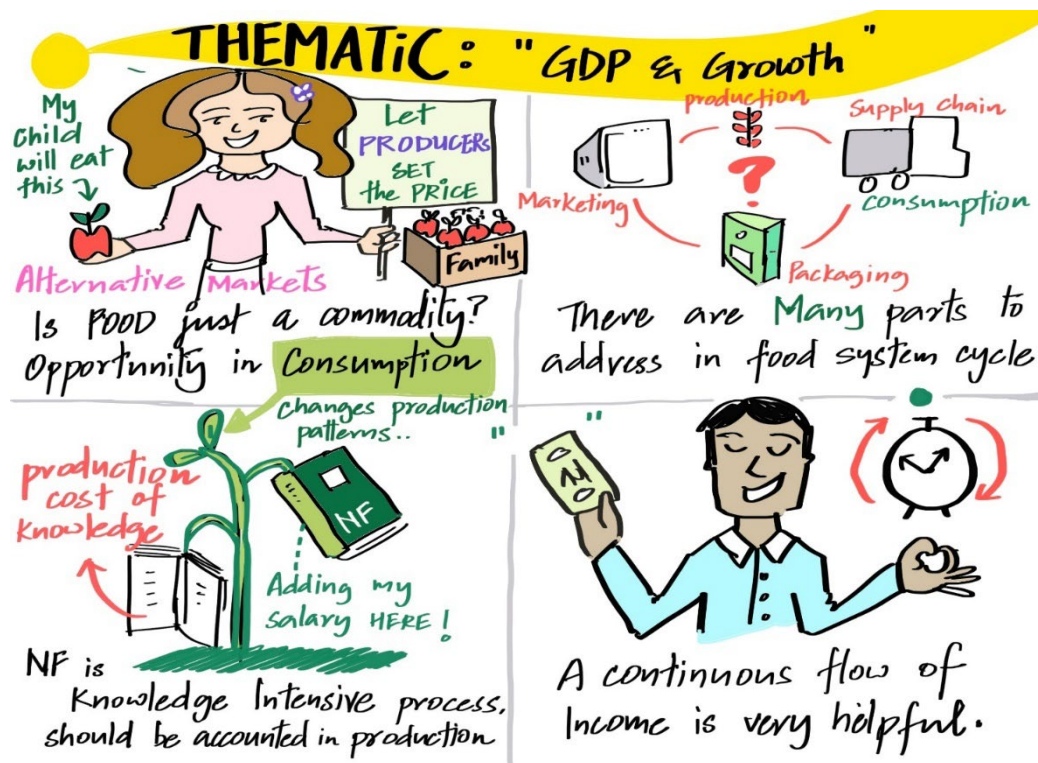 THEMATiC: "GDP & Growth"
My
Child
will eat
this
Let
PRODUCERs
SET
the PRICE
Family
Alternative Markets
Is FOOD just a commodity?
Opportunity in Consumption
production
Supply chain
?
Marketing
Consumption
Packaging
There are Many parts to
address in food system cycle
changes production
patterns..
production
cost of
Knowledge
NF
Adding my
salary HERE!
NF is
Knowledge Intensive process,
should be accounted in production
" "
A continuous flow of
Income is very helpful.